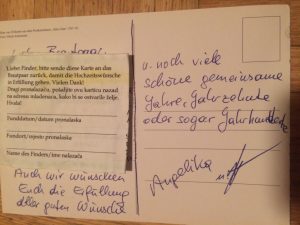 Lieber Finder, bitte sende diese Karte an das
Brautpaar zurück, damit die Hochzeitswünsche
in Erfüllung gehen. Vielen Dank!
Dragi pronalazaču, pošaljite ovu karticu nazad
na adresu mladenaca, kako bi se ostvarile želje.
Hvala!
Funddatum/datum pronalaska
Fundort/mjesto pronalaska
Name des Finders/ime nalazača
Auch wir wünschen
Euch die Erfüllung
aller guten Wünsche
u. noch viele
schöne gemeinsame
Jahre, Jahrzehnte
oder sogar Jahrhunderte
Angelika